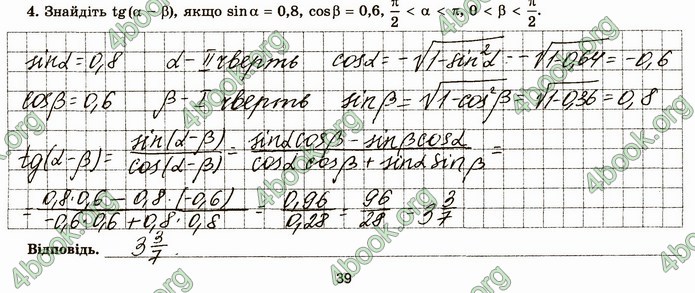 4. Знайдіть tg(α − β), якщо sin α = 0,8, cos β = 0,6, π/2 < α < π, 0 < β < π/2.
sinα = 0,8   α – II чверть   cosα = −√(1−sin²α) = −√(1−0,64) = −0,6
cosβ = 0,6   β – I чверть   sinβ = √(1−cos²β) = √(1−0,36) = 0,8
tg(α−β) = sin(α−β)/cos(α−β) = (sinα cosβ − sinβ cosα)/(cosα cosβ + sinα sinβ) =
= (0,8·0,6 − 0,8·(−0,6))/(−0,6·0,6 + 0,8·0,8) = 0,96/0,28 = 96/28 = 3 3/7
Відповідь. 3 3/7.
39
4book.org